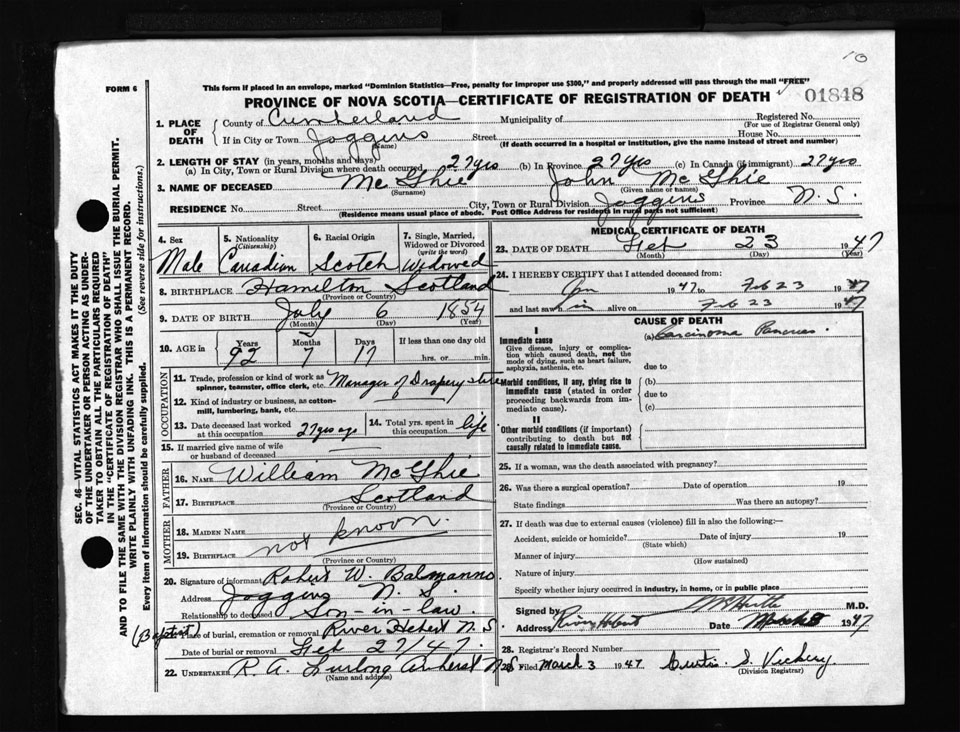 10
FORM 6
This form if placed in an envelope, marked "Dominion Statistics—Free, penalty for improper use $300," and properly addressed will pass through the mail "FREE"
PROVINCE OF NOVA SCOTIA—CERTIFICATE OF REGISTRATION OF DEATH
01848
1. PLACE OF DEATH
County of Cumberland Municipality of Registered No.
(For use of Registrar General only)
If in City or Town Joggins Street House No.
(Name) (If death occurred in a hospital or institution, give the name instead of street and number)
2. LENGTH OF STAY (in years, months and days)
(a) In City, Town or Rural Division where death occurred 27 yrs (b) In Province 27 yrs (c) In Canada (if immigrant) 27 yrs
3. NAME OF DECEASED McGhie John McGhie
(Surname) (Given name or names)
RESIDENCE No. Street City, Town or Rural Division Joggins Province N.S.
(Residence means usual place of abode. Post Office Address for residents in rural parts not sufficient)
4. Sex
Male
5. Nationality
(Citizenship)
Canadian
6. Racial Origin
Scotch
7. Single, Married, Widowed or Divorced
(write the word)
Widowed
8. BIRTHPLACE Hamilton Scotland
(Province or Country)
9. DATE OF BIRTH July 6 1854
(Month) (Day) (Year)
10. AGE in Years Months Days If less than one day old
92 7 17 hrs. or min.
OCCUPATION
11. Trade, profession or kind of work as spinner, teamster, office clerk, etc. Manager of Drapery store
12. Kind of industry or business, as cotton-mill, lumbering, bank, etc.
13. Date deceased last worked at this occupation 27 yrs ago
14. Total yrs. spent in this occupation life
15. If married give name of wife or husband of deceased
FATHER
16. NAME William McGhie
17. BIRTHPLACE Scotland
(Province or Country)
MOTHER
18. MAIDEN NAME
19. BIRTHPLACE not known.
(Province or Country)
20. Signature of informant Robert W. Balmanno
Address Joggins N.S.
Relationship to deceased Son-in-law.
(Baptist)
Place of burial, cremation or removal River Hebert N.S
Date of burial or removal Feb 27/47.
22. UNDERTAKER R. A. Furlong Amherst N.S
(Name and address)
MEDICAL CERTIFICATE OF DEATH
23. DATE OF DEATH Feb 23 1947
(Month) (Day) (Year)
24. I HEREBY CERTIFY that I attended deceased from:
1947 to Feb 23 1947
and last saw him alive on Feb 23 1947
CAUSE OF DEATH
I
Immediate cause
Give disease, injury or complication which caused death, not the mode of dying, such as heart failure, asphyxia, asthenia, etc.
(a) Carcinoma Pancreas.
due to
Morbid conditions, if any, giving rise to immediate cause (stated in order proceeding backwards from immediate cause).
(b)
due to
(c)
II
Other morbid conditions (if important) contributing to death but not causally related to immediate cause.
25. If a woman, was the death associated with pregnancy?
26. Was there a surgical operation? Date of operation 19
State findings Was there an autopsy?
27. If death was due to external causes (violence) fill in also the following:—
Accident, suicide or homicide? Date of injury 19
(State which)
Manner of injury
(How sustained)
Nature of injury
Specify whether injury occurred in industry, in home, or in public place
Signed by M.D.
Address River Hebert Date 1947
28. Registrar's Record Number
Filed March 3 1947 Curtis S. Vickery
(Division Registrar)
SEC. 46—VITAL STATISTICS ACT MAKES IT THE DUTY
OF THE UNDERTAKER OR PERSON ACTING AS UNDERTAKER
TO OBTAIN ALL THE PARTICULARS REQUIRED
IN THE "CERTIFICATE OF REGISTRATION OF DEATH"
AND TO FILE THE SAME WITH THE DIVISION REGISTRAR WHO SHALL ISSUE THE BURIAL PERMIT.
WRITE PLAINLY WITH UNFADING INK. THIS IS A PERMANENT RECORD.
Every item of information should be carefully supplied. (See reverse side for instructions.)